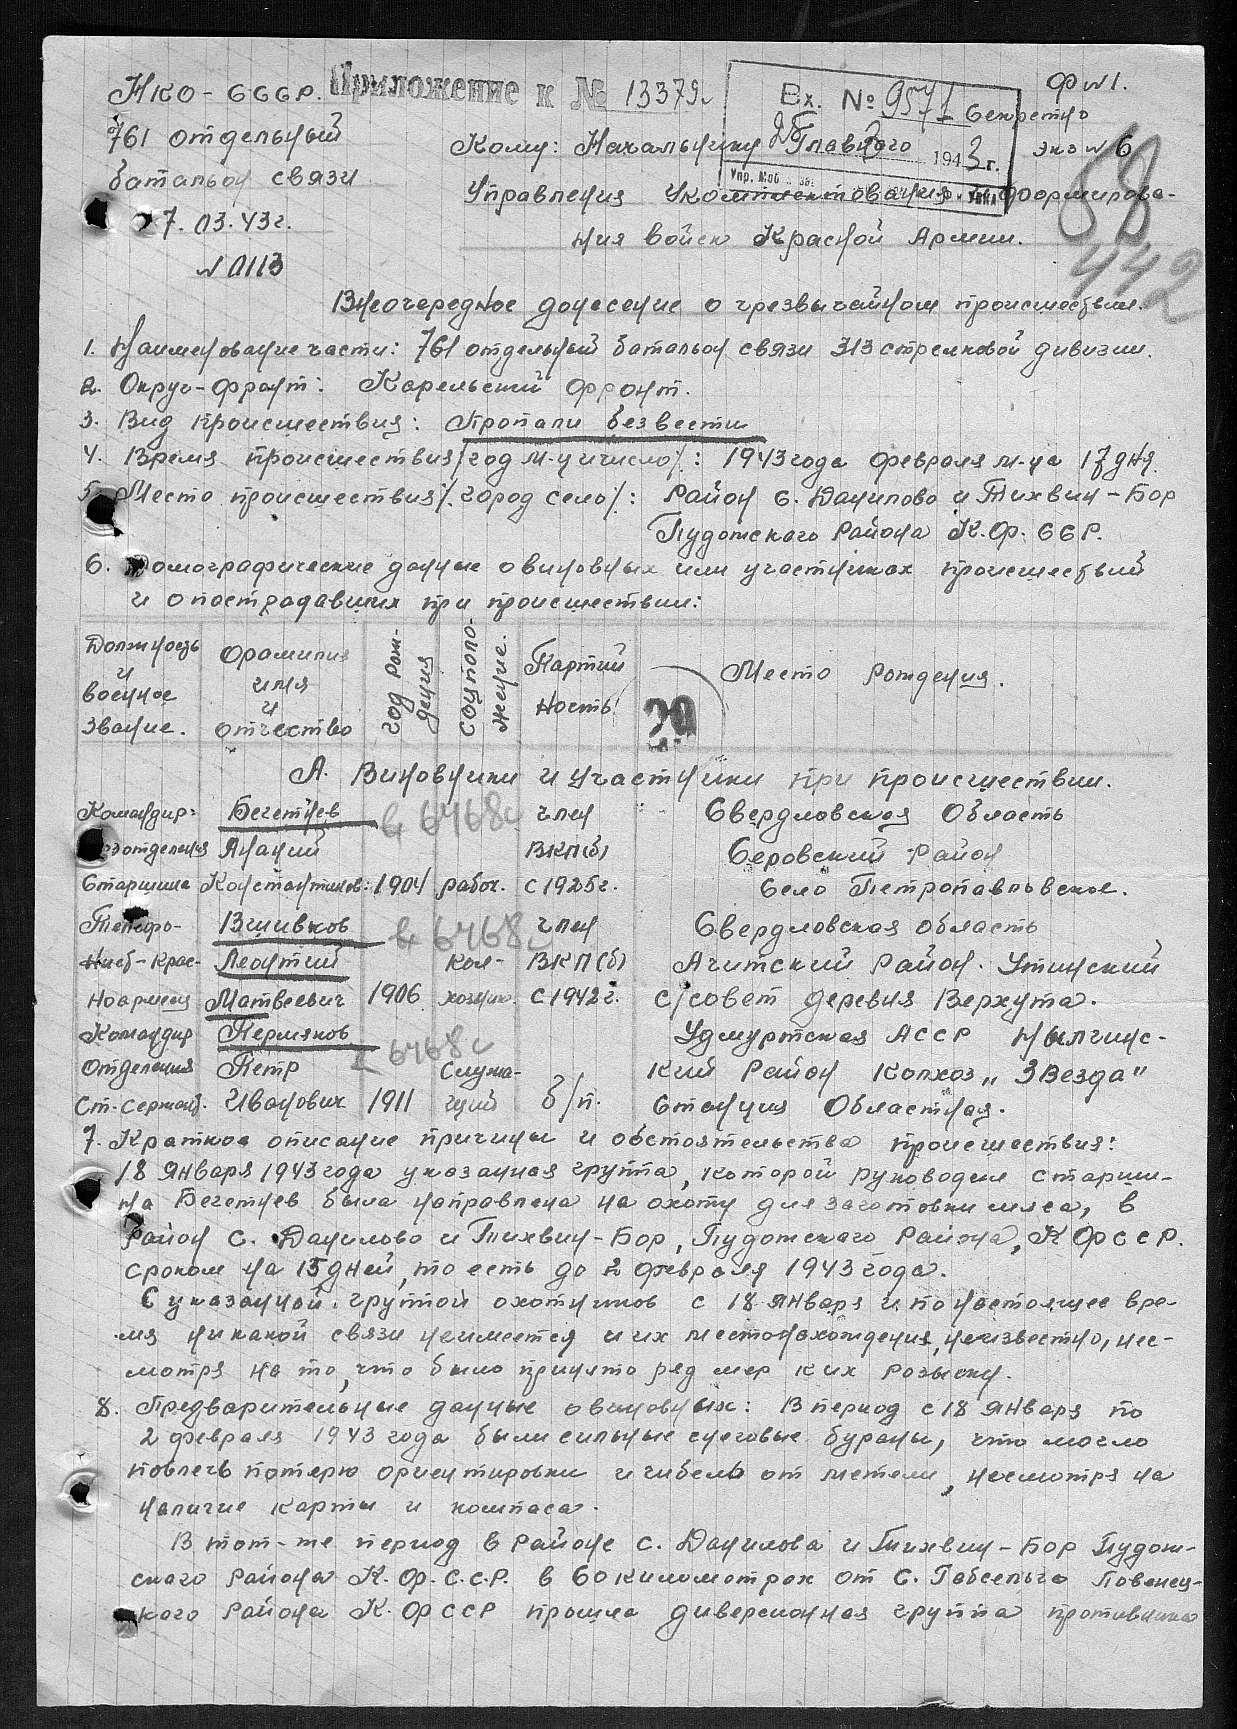 НКО - СССР.
Приложение к № 13379с
Вх. № 9571
1943 г.
Ф №1.
Секретно
экз № 6
58
442
761 отдельный
батальон связи
7.03.43г.
№ 0113
Кому: Начальнику Главного
Управления Укомплектования и Формирова-
ния войск Красной Армии.
Внеочередное донесение о чрезвычайном происшествии.
1. Наименование части: 761 отдельный батальон связи 313 стрелковой дивизии.
2. Округ-фронт: Карельский фронт.
3. Вид происшествия: Пропали без вести
4. Время происшествия /год м-ц и число/: 1943 года февраля м-ца 17 дня.
5. Место происшествия /город село/: Район с. Данилово и Тихвин-Бор
Пудожского Района К.Ф.ССР.
6. Домографические данные о виновных или участниках происшествий
и о пострадавших при происшествии:
Должность и военное звание.
Фамилия имя и отчество
год рождения
соцположение.
Партийность
29
Место рождения.
А. Виновники и участники при происшествии.
Командир- Бегетнев в 6468с член Свердловская Область
отделения Ананий ВКП(б) Серовский район
Старшина Константинов. 1904 рабоч. с 1925г. Село Петропавловское.
Телефо- Вшивков в 6468с член Свердловская область
нист-крас- Леонтий кол- ВКП(б) Ачитский район. Утинский
ноармеец Матвеевич 1906 хозник. с 1942г. с/совет деревня Верхута.
Командир Пермяков 6468с Удмуртская АССР Нылгинс-
отделения Петр Служа- кий Район Колхоз „Звезда"
Ст. сержант. Иванович 1911 щий б/п. Станция Областная.
7. Краткое описание причины и обстоятельства происшествия:
18 января 1943 года указанная группа, которой руководил старши-
на Бегетнев была направлена на охоту для заготовки мяса, в
район с. Данилово и Тихвин-Бор, Пудожского Района, КФССР.
сроком на 15 дней, то есть до 2 февраля 1943 года.
С указанной группой охотников с 18 января и по настоящее вре-
мя никакой связи неимеется и их местонахождения, неизвестно, нес-
мотря на то, что было принято ряд мер к их розыску.
8. Предварительные данные о виновных: В период с 18 января по
2 февраля 1943 года были сильные снеговые бураны, что могло
повлечь потерю ориентировки и гибель от метели, несмотря на
наличие карты и компаса.
В тот-же период в районе с. Данилова и Тихвин-Бор Пудож-
ского района К.Ф.С.С.Р. в 60 километрах от с. Габсельга Повенец-
кого Района К.ФССР прошла диверсионная группа противника